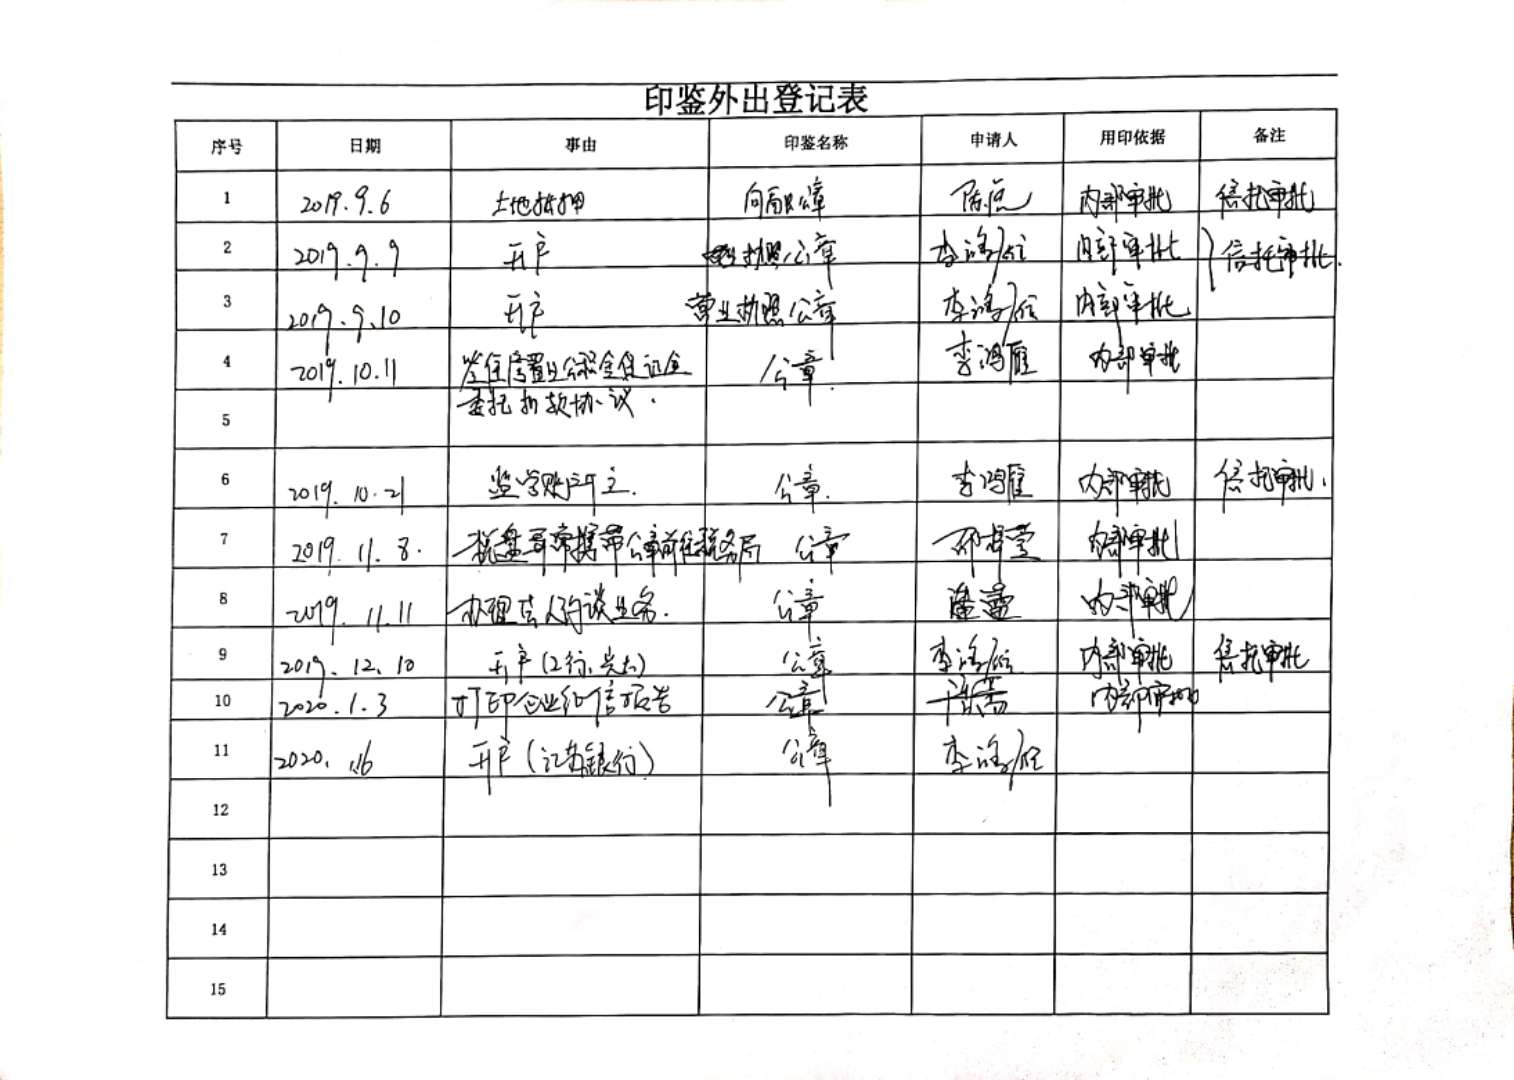 印鉴外出登记表
序号 日期 事由 印鉴名称 申请人 用印依据 备注
1 2019.9.6 土地抵押 公章 内部审批 信托审批
2 2019.9.9 开户 营业执照公章 李鸿雁 内部审批 信托审批.
3 2019.9.10 开户 营业执照公章 李鸿雁 内部审批
4 2019.10.11 签住房置业公积金保证金 公章. 李鸿雁 内部审批
委托扣款协议.
5
6 2019.10.21 监管账户. 公章. 李鸿雁 内部审批 信托审批.
7 2019.11.8. 携带公章前往税务局 公章 内部审批
8 2019.11.11 办理法人约谈业务. 公章 潘 内部审批
9 2019.12.10 开户(工行、光大) 公章 李鸿雁 内部审批 信托审批
10 2020.1.3 打印企业征信报告 公章 内部审批
11 2020.1.16 开户(江苏银行) 公章 李鸿雁
12
13
14
15